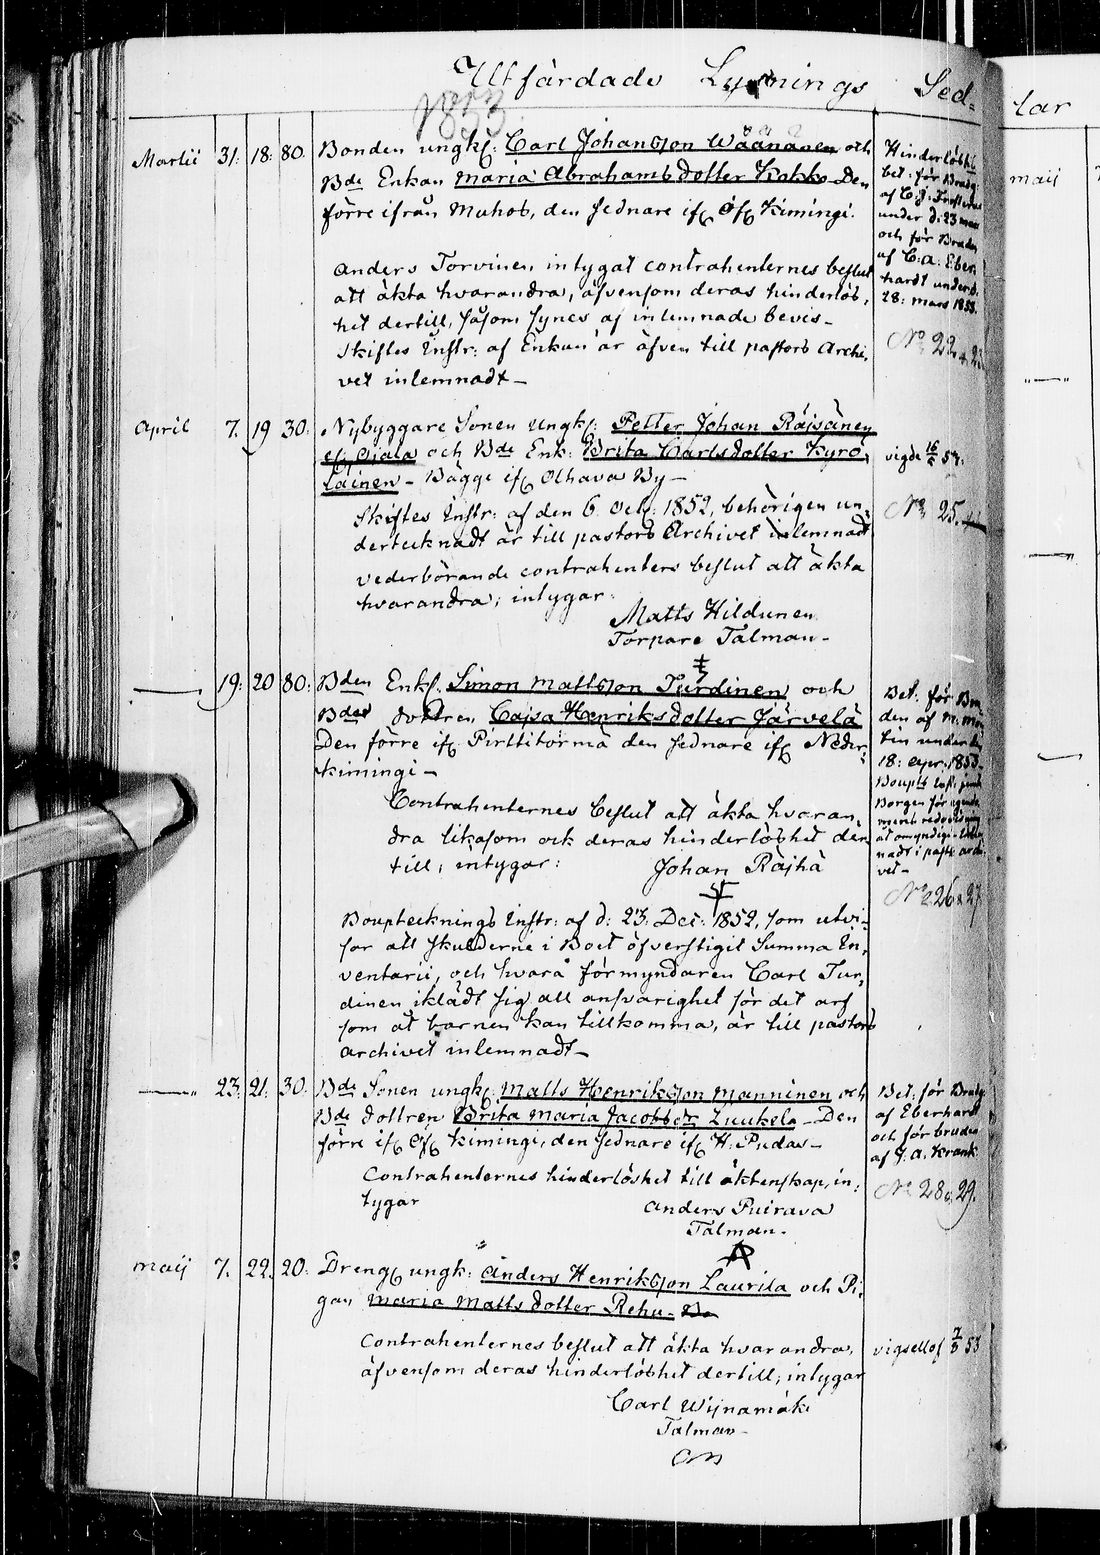 Utfärdade Lysnings Sed=
lar
1853
Martii 31. 18. 80. Bonden ungk: Carl Johansson Wäänänen och
Bde Enkan Maria Abrahamsdotter Kokko Den
förre ifrån Muhos, den sednare if öf Kimingi.
Anders Torvinen intygat contrahenternes beslut
att äkta hvarandra, äfvensom deras hinderlös,
het dertill, såsom synes af inlemnade bevis_
Skiftes Instr: af Enkan är äfven till pastors Archi,
vet inlemnadt_
Hinderlöshets
bet: för Brudg:
af C. J.
under d: 23 mars
och för Bruden
af C. A. Eber,
hardt under d.
28: mars 1853.
No 22 & 23
April 7. 19 30. Nybyggare Sonen Ungk: Petter Johan Räisänen
och Bde Enk: Brita Carlsdotter Kyrö,
läinen_ Bägge if Olhava By_
Skiftes Instr: af den 6 Oct: 1852, behörigen un,
dertecknadt är till pastors Archivet inlemnadt
vederbörande contrahenters beslut att äkta
hvarandra; intygar:
Matts Hildunen
Torpare Talman_
vigde 16/5 53.
No 25.
19: 20 80: Bden Enk: Simon Mattsson Turdinen och
Bdes dottren Cajsa Henriksdotter Järvelä
Den förre if Pirttitörmä den sednare if Neder,
kimingi_
Contrahenternes beslut att äkta hvaran,
dra likasom ock deras hinderlöshet der
till; intygar:
Johan Räihä
Bouptecknings Instr: af d: 23. Dec: 1852, som utvi,
sar att skulderne i Boet öfverstigit Summa In,
ventarii, och hvara förmyndaren Carl Tur,
dinen iklädt sig all ansvarighet för det arf
som åt barnen kan tillkomma, är till pastors
archivet inlemnadt_
Bet: för Bon
den af
under den
18: Apr: 1853_
Boupts
Borgen för
redovisning
åt omyndige
nadt i past: archi
vet_
No 26 & 27
23. 21. 30. Bde Sonen ungk: Matts Henriksson Manninen och
Bde dottren Brita Maria Jacobsdr Luukela_ Den
förre if öf Kimingi, den sednare if H: Pudas_
Contrahenternes hinderlöshet till äktenskap, in,
tygar
Anders Puirava
Talman_
Bet: för Brudg:
af Eberhardt
och för bruden
af J. A. Krank
No 28 & 29.
Maij 7. 22. 20. Dreng ungk: Anders Henriksson Laurila och Pi,
gan Maria Mattsdotter Rehu_
Contrahenternes beslut att äkta hvarandra,
äfvensom deras hinderlöshet dertill; intygar
Carl Wijnamäki
Talman_
7/8 53
maij